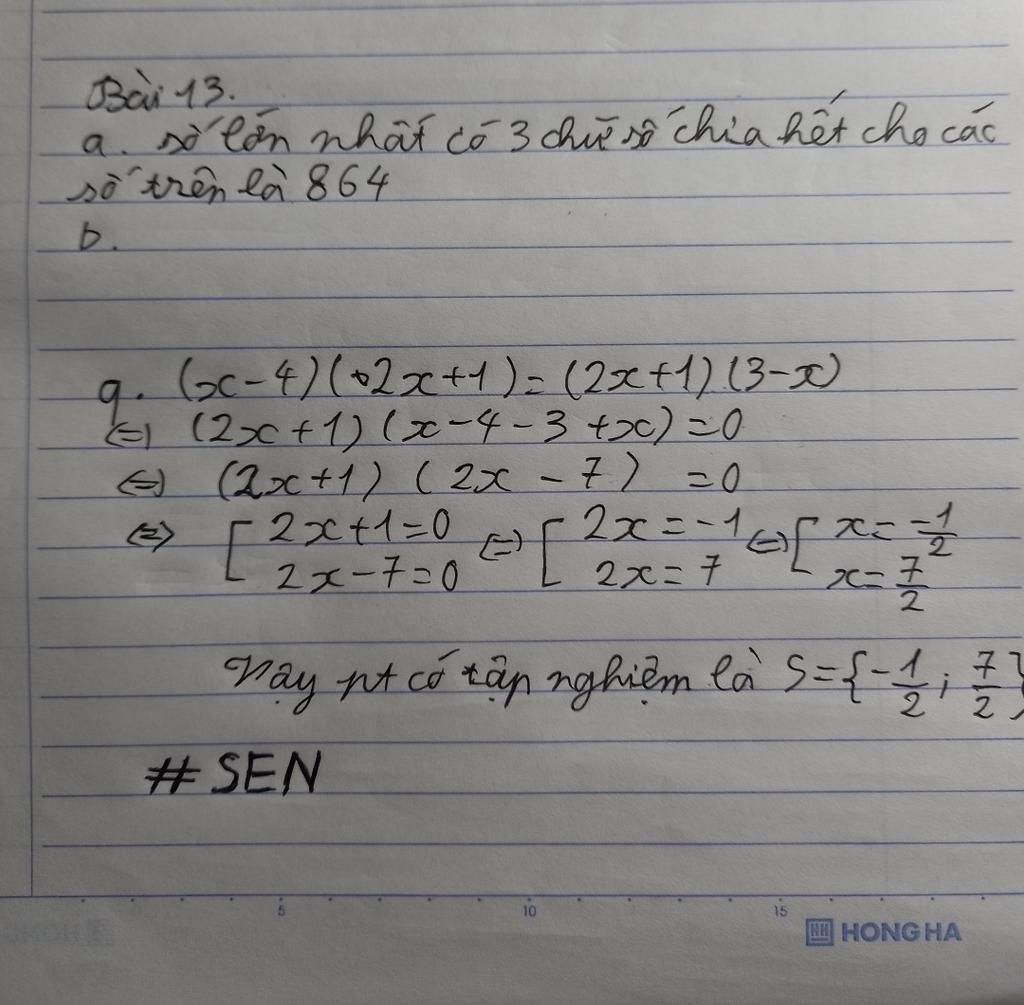 Bài 13.
a. số lớn nhất có 3 chữ số chia hết cho các
số trên là 864
b.
9. (x-4)(2x+1)=(2x+1)(3-x)
<=> (2x+1)(x-4-3+x)=0
<=> (2x+1)(2x-7)=0
<=> [ 2x+1=0 <=> [ 2x=-1 <=> [ x=-1/2
2x-7=0 2x=7 x=7/2
Vậy pt có tập nghiệm là S={-1/2; 7/2}
#SEN
5 10 15
HH HONG HA